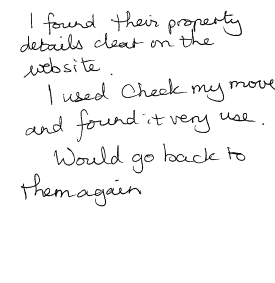 I found their property
details clear on the
website.
I used Check my move
and found it very use.
Would go back to
them again